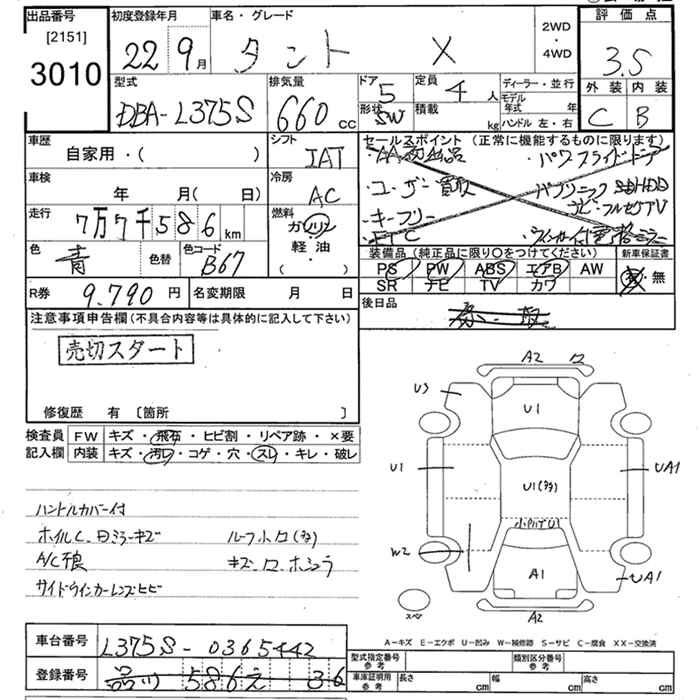 出品番号
[2151]
3010
初度登録年月
22 9月
車名・グレード
タント X
2WD
・
4WD
評価点
3.5
外装 内装
C B
型式
DBA-L375S
排気量
660 cc
ドア
5
形状
SW
定員
4 人
積載
kg
ディーラー・並行
モデル年式 年
ハンドル 左・右
車歴
自家用・( )
シフト
IAT
車検
年 月( 日)
冷房
AC
走行
7万7千586 km
燃料
ガソリン
軽油
・( )
色
青
色替
色コード
B67
R券 9.790 円
名変期限 月 日
セールスポイント (正常に機能するものに限ります)
・ユーザー買取
・パワースライドドア
・キーフリー
・ETC
装備品 (純正品に限り○をつけてください)
新車保証書
PS PW ABS エアB AW
SR ナビ TV カワ
有・無
後日品
注意事項申告欄(不具合内容等は具体的に記入して下さい)
売切スタート
修復歴 有 〔箇所 〕
検査員記入欄
FW キズ・飛石・ヒビ割・リペア跡・×要
内装 キズ・汚レ・コゲ・穴・スレ・キレ・破レ
ハンドルカバー付
ホイルC、日ミラーキズ ルーフ小ロ(多)
A/C不良
サイドウインカーレンズヒビ
A2
U3
U1
U1
U1(多)
UA1
W2
A1
UA1
A2
スペア
A-キズ E-エクボ U-凹み W-補修跡 S-サビ C-腐食 XX-交換済
車台番号 L375S-0365442
登録番号 品川 586 え 36
型式指定番号 参考
類別区分番号 参考
車庫証明用 参考 長さ cm 幅 cm 高さ cm